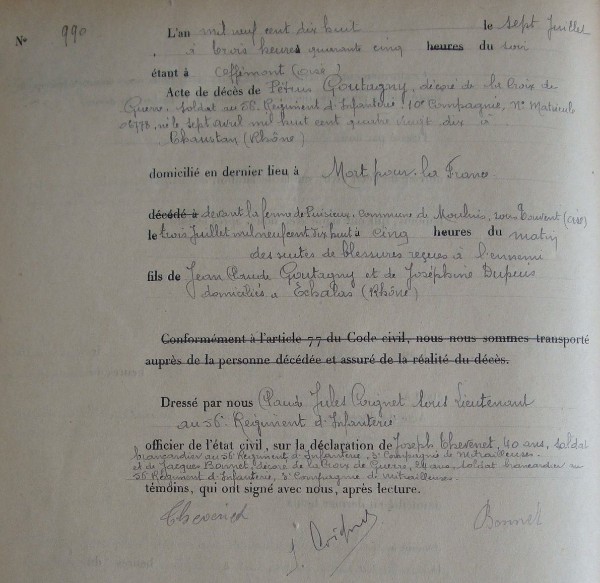 N° 990 L'an mil neuf cent dix huit le sept Juillet
à trois heures quarante cinq heures du soir
étant à Offémont (Oise)
Acte de décès de Pétrus Goutagny, décoré de la Croix de
Guerre, soldat au 56e Régiment d'Infanterie, 10e Compagnie, N° Matricule
né le sept avril mil huit cent quatre vingt dix à
(Rhône)
domicilié en dernier lieu à Mort pour la France
décédé à devant la ferme de Puisieux, commune de Moulins sous Touvent (Oise)
le trois Juillet mil neuf cent dix huit à cinq heures du matin
des suites de blessures reçues à l'ennemi
fils de Jean Claude Goutagny et de Joséphine Dupuis
domiciliés à Echalas (Rhône)
Conformément à l'article 77 du Code civil, nous nous sommes transporté
auprès de la personne décédée et assuré de la réalité du décès.
Dressé par nous Claude Jules Coignet sous Lieutenant
au 56e Régiment d'Infanterie
officier de l'état civil, sur la déclaration de Joseph Thevenet, 40 ans, soldat
brancardier au 56e Régiment d'Infanterie, 3e Compagnie de Mitrailleuses
et de Jacques Bonnet, décoré de la Croix de Guerre, ans, soldat brancardier au
56e Régiment d'Infanterie, 3e Compagnie de mitrailleuses
témoins, qui ont signé avec nous, après lecture.
Thevenet J. Coignet Bonnet